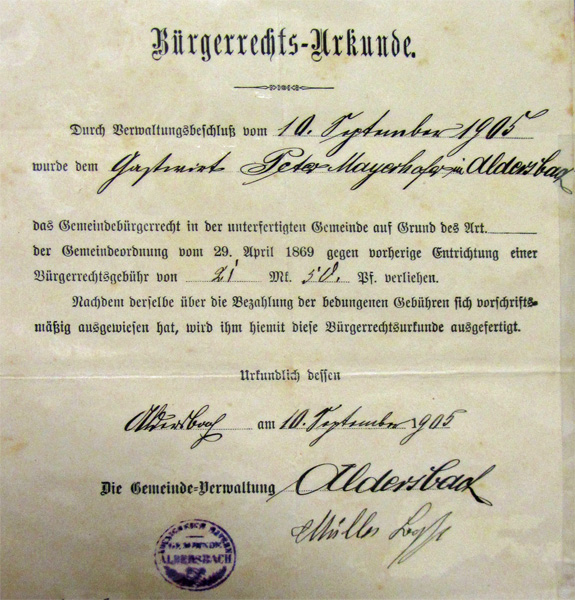 Bürgerrechts-Urkunde.
Durch Verwaltungsbeschluß vom 10. September 1905
wurde dem Gastwirt Peter Mayerhofer in Aldersbach
das Gemeindebürgerrecht in der unterfertigten Gemeinde auf Grund des Art.
der Gemeindeordnung vom 29. April 1869 gegen vorherige Entrichtung einer
Bürgerrechtsgebühr von 21 Mk. 50. Pf. verliehen.
Nachdem derselbe über die Bezahlung der bedungenen Gebühren sich vorschrifts-
mäßig ausgewiesen hat, wird ihm hiemit diese Bürgerrechtsurkunde ausgefertigt.
Urkundlich dessen
Aldersbach am 10. September 1905
Die Gemeinde-Verwaltung Aldersbach
Müller
KOENIGREICH BAYERN
GEMEINDE
ALDERSBACH